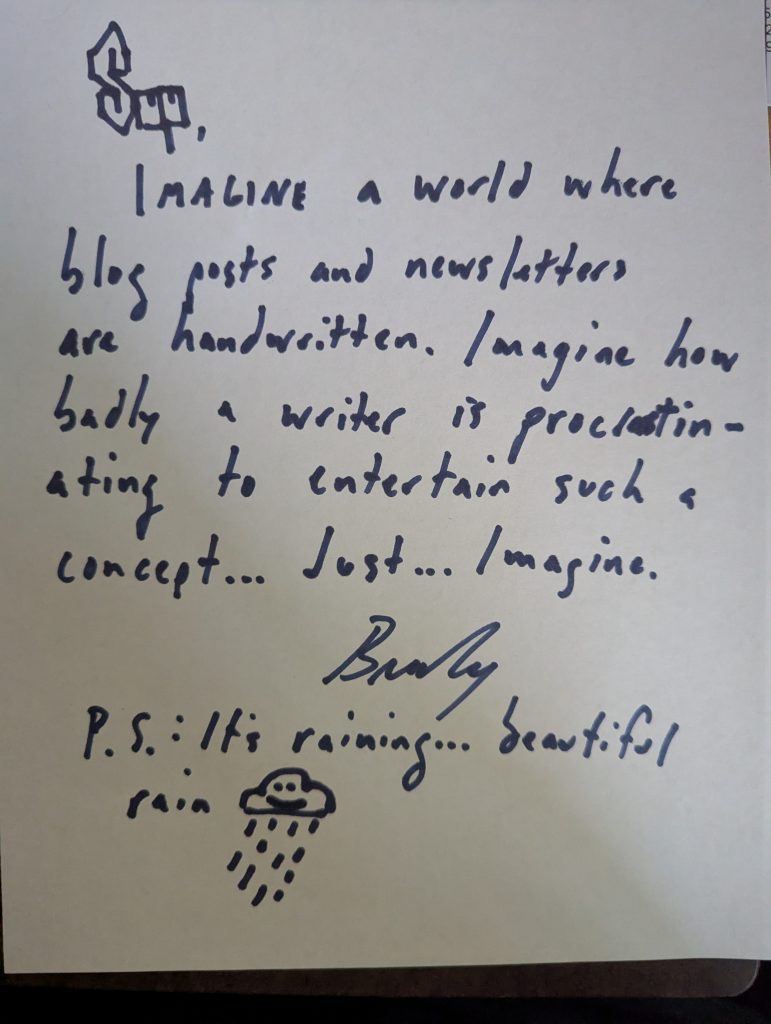 Sup,
IMAGINE a world where
blog posts and newsletters
are handwritten. Imagine how
badly a writer is procrastin-
ating to entertain such a
concept... Just... Imagine.
Bradly
P.S.: It's raining... beautiful
rain